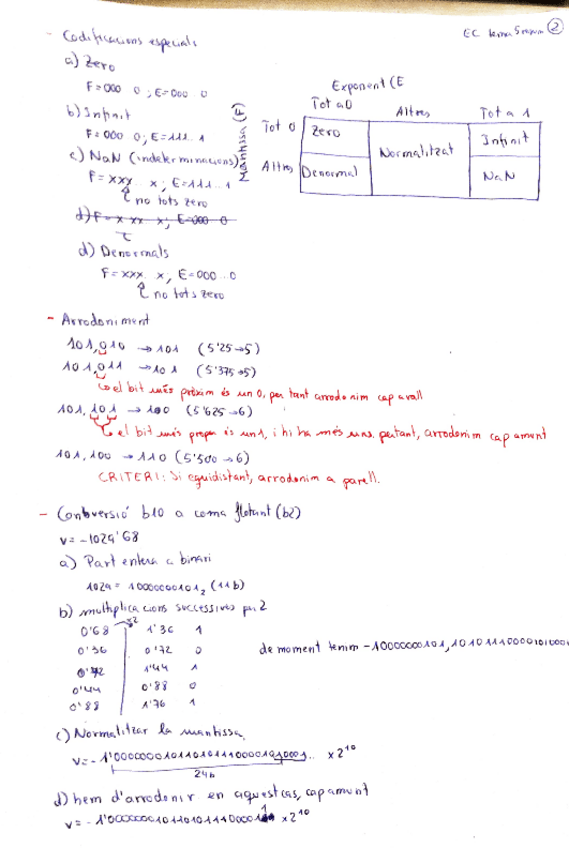 EC tema 5 resum ②
- Codificacions especials
a) Zero
F=000 0 ; E=000 0
b) Infinit
F=000 0; E=111..1
c) NaN (indeterminacions)
F=xxx.. x; E=111...1
no tots zero
d) F= x xx x; E=000 0
d) Denormals
F=xxx.. x, E=000...0
no tots zero
Exponent (E
Tot a 0 Altres Tot a 1
Mantissa (F)
Tot 0 Zero Normalitzat Infinit
Altres Denormal NaN
- Arrodoniment
101,010 → 101 (5'25→5)
101,011 → 101 (5'375→5)
el bit més pròxim és un 0, per tant arrodonim cap avall
101,101 → 100 (5'625→6)
el bit més proper és un 1, i hi ha més uns. pertant, arrodonim cap amunt
101,100 → 110 (5'500→6)
CRITERI: Si equidistant, arrodonim a parell.
- Conversió b10 a coma flotant (b2)
v=-1029'68
a) Part entera a binari
1029= 10000000101₂ (11b)
b) multiplicacions successives per 2
x2
0'68 1'36 1
0'36 0'72 0
0'72 1'44 1
0'44 0'88 0
0'88 1'76 1
de moment tenim -10000000101,1010111000010100
c) Normalitzar la mantissa
v=-1'0000000101101011100001010001.. x2¹⁰
24b
d) hem d'arrodonir en aquest cas, cap amunt